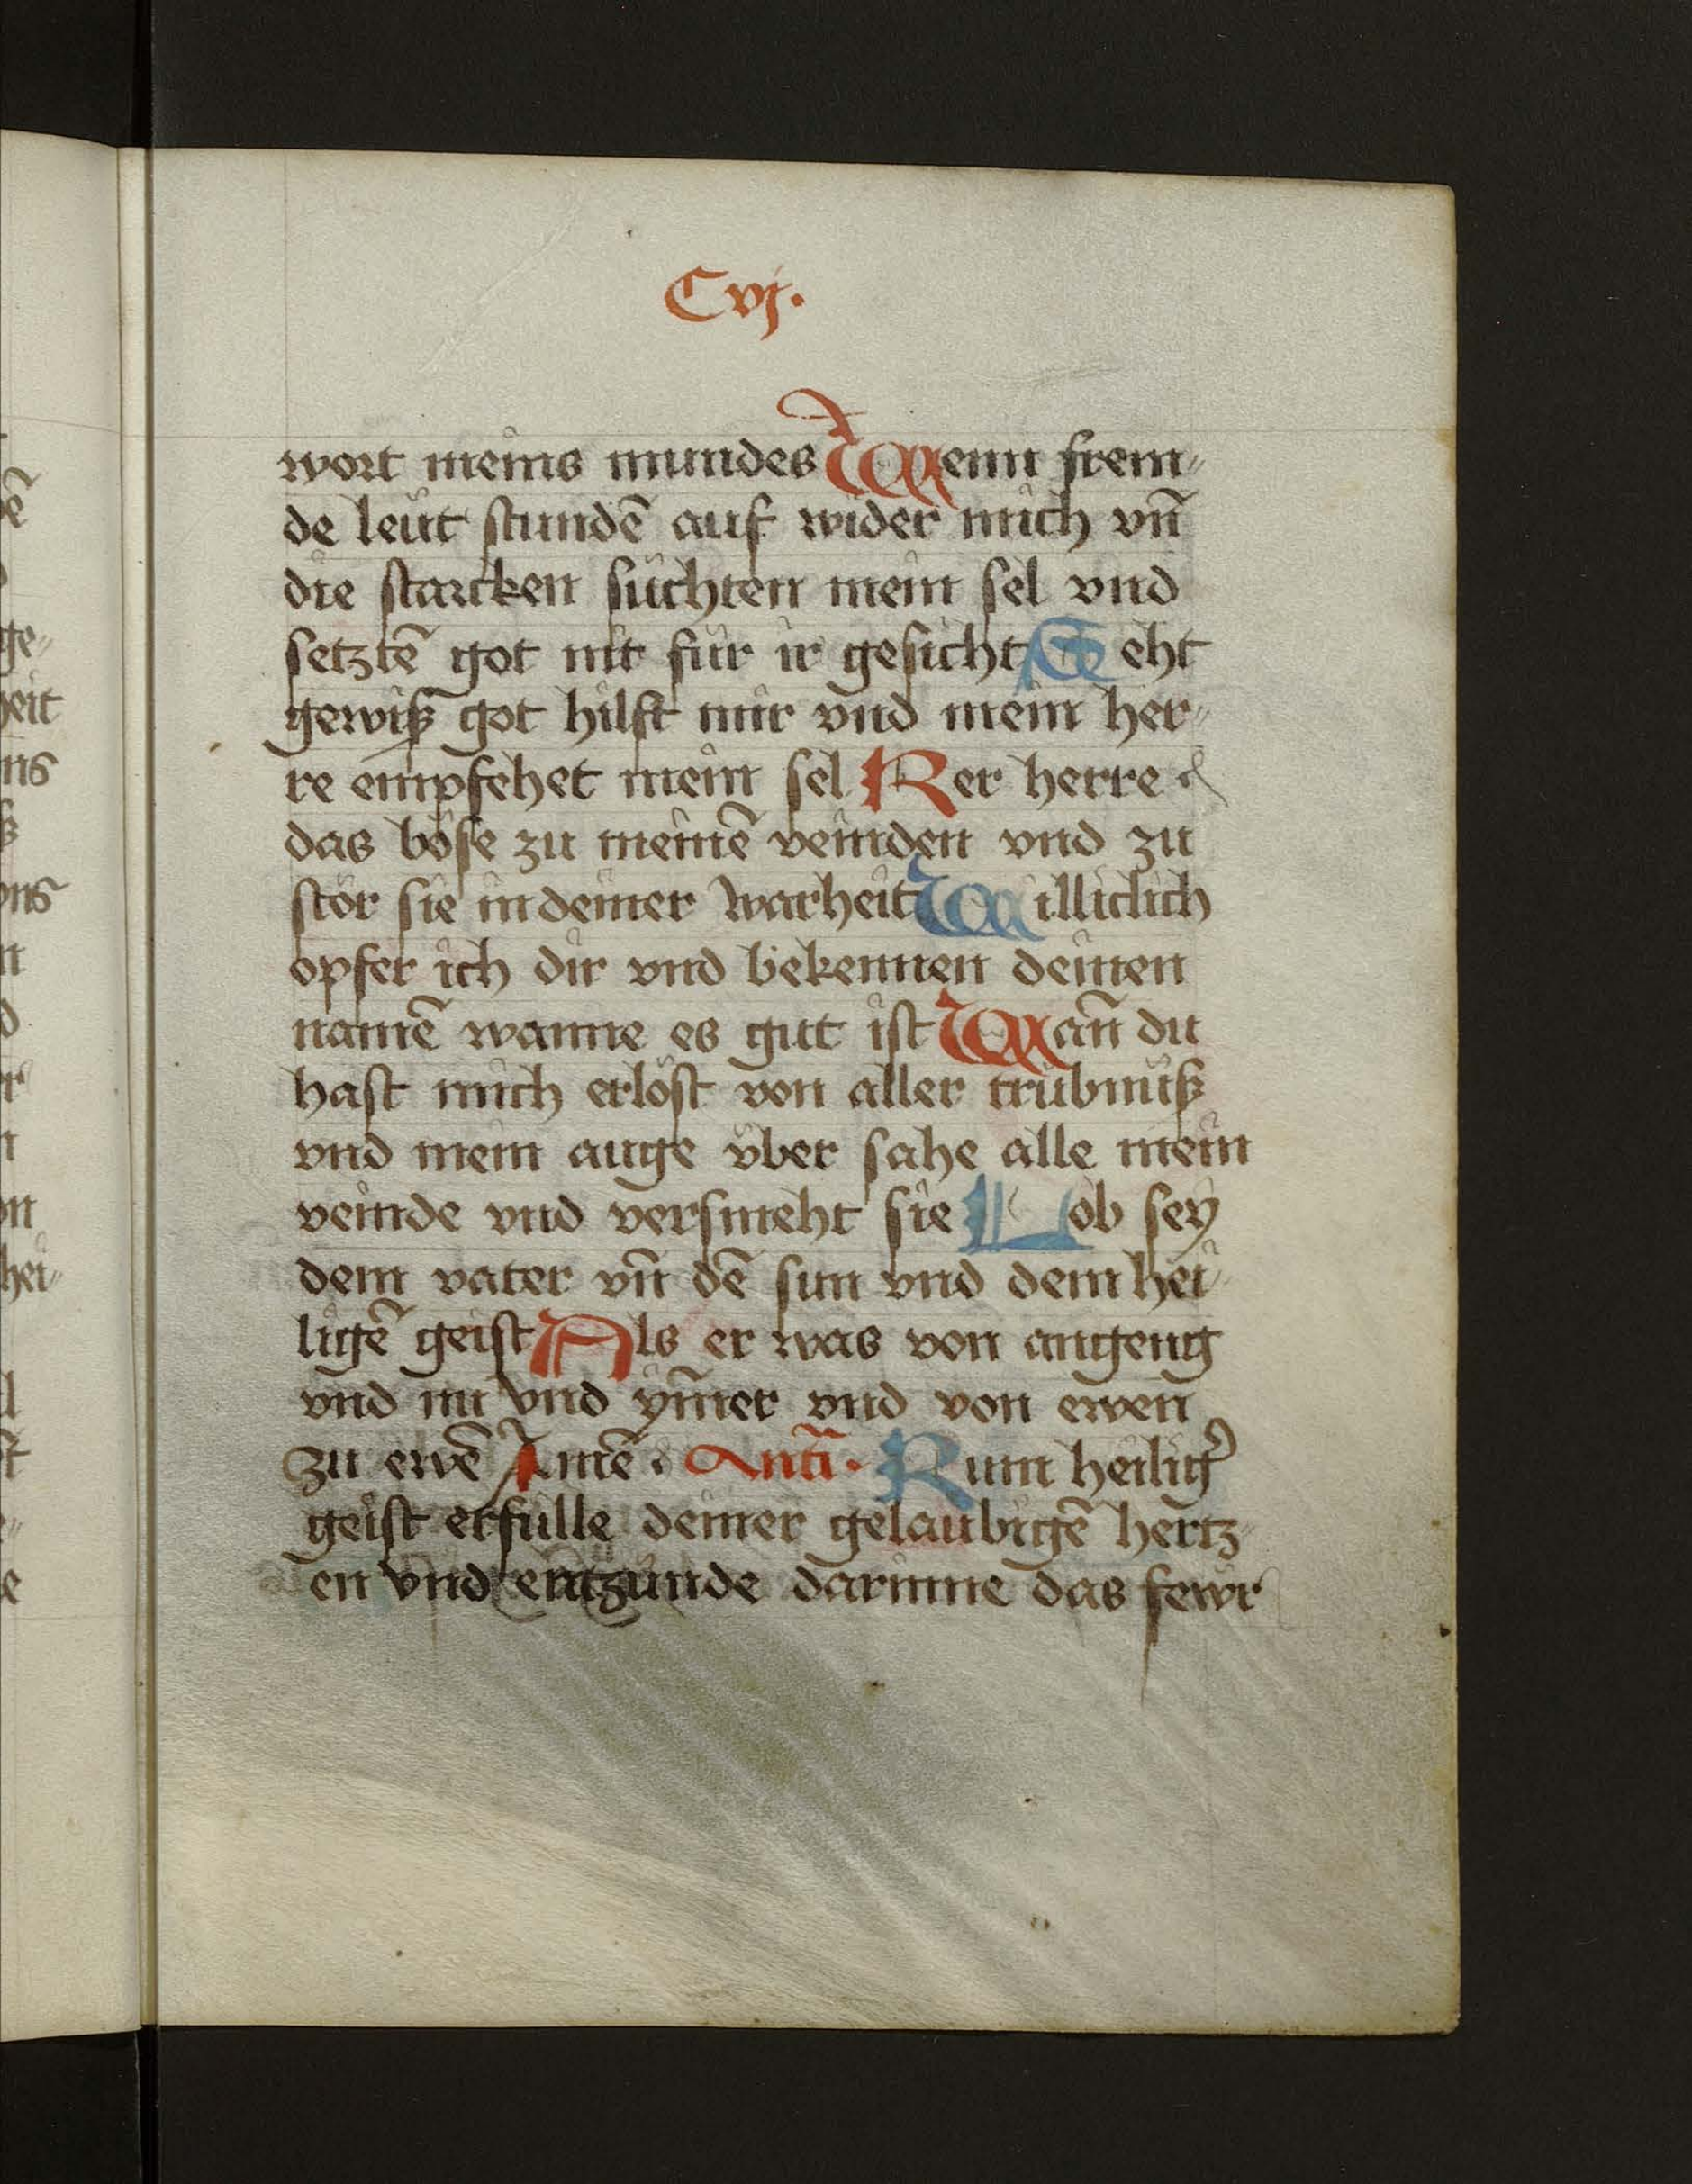 Cvj.
wort meins mundes Wenn frem⸗
de leüt stundē auf wider mich vn̄
die starcken süchten mein sel vnd
setztē got nit für ir gesicht Seht
gewiß got hilft mir vnd mein her⸗
re empfehet mein sel Ker herre
das böse zu meinē veinden vnd zu
stör sie in deiner warheit Williclich
opfer ich dir vnd bekennen deinen
namē wanne es gut ist Wan̄ du
hast mich erlöst von aller trübnüß
vnd mein auge über sahe alle mein
veinde vnd versmeht sie Lob sey
dem vater vn̄ dē sun vnd dem hei⸗
ligē geist Als er was von angeng
vnd nu vnd ym̄er vnd von ewen
zu ewē Amē. Anti. Kum heilig̾
geist erfülle deiner gelaubigē hertz⸗
en vnd entzünde darinne das fewr